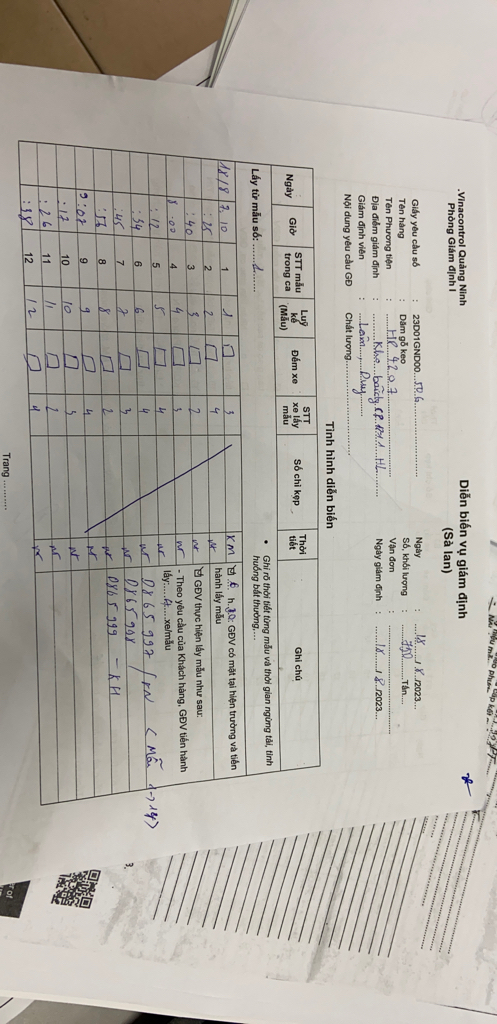 .Vinacontrol Quảng Ninh
Phòng Giám định I
Diễn biến vụ giám định
(Sà lan)
Giấy yêu cầu số : 23D01GND00...
Ngày : ...18.../.8../2023...
Tên hàng : Dăm gỗ keo
Số, khối lượng : ...750......Tấn...
Tên Phương tiện : ....HP 4207
Vận đơn
Địa điểm giám định : ........Kho
Ngày giám định : ......18..../.8../2023...
Giám định viên : ...Lâm... Duy
Nội dung yêu cầu GĐ : Chất lượng
Tình hình diễn biến
Ngày Giờ STT mẫu trong ca Luỹ kế (Mẫu) Đếm xe STT xe lấy mẫu Số chì kẹp Thời tiết Ghi chú
Lấy từ mẫu số: ......1......
• Ghi rõ thời tiết từng mẫu và thời gian ngừng tải, tình huống bất thường,...
18/8 7.10 1 1 3 KM
:25 2 2 4 nt
:40 3 3 2 nt
8:00 4 4 3 nt
:12 5 5 4 nt
:34 6 6 4 nt
:45 7 7 3 nt
:56 8 8 2 nt
9:07 9 9 4 nt
:17 10 10 3 nt
:26 11 11 2 nt
:38 12 12 4 nt
GĐV có mặt tại hiện trường và tiến hành lấy mẫu
GĐV thực hiện lấy mẫu như sau:
- Theo yêu cầu của Khách hàng, GĐV tiến hành lấy:...4...xe/mẫu
0865997
0865998
0865999 - KH
Trang ..........